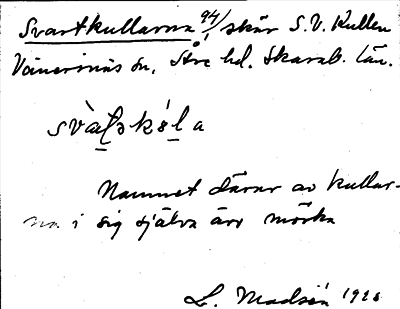 Svartkullarna 94/ skär S.V. Kullen
Vänersnäs sn. Åse hd. Skarab. län.
Namnet därav av kullar-
na i sig själva äro mörka
L. Madsén 1926